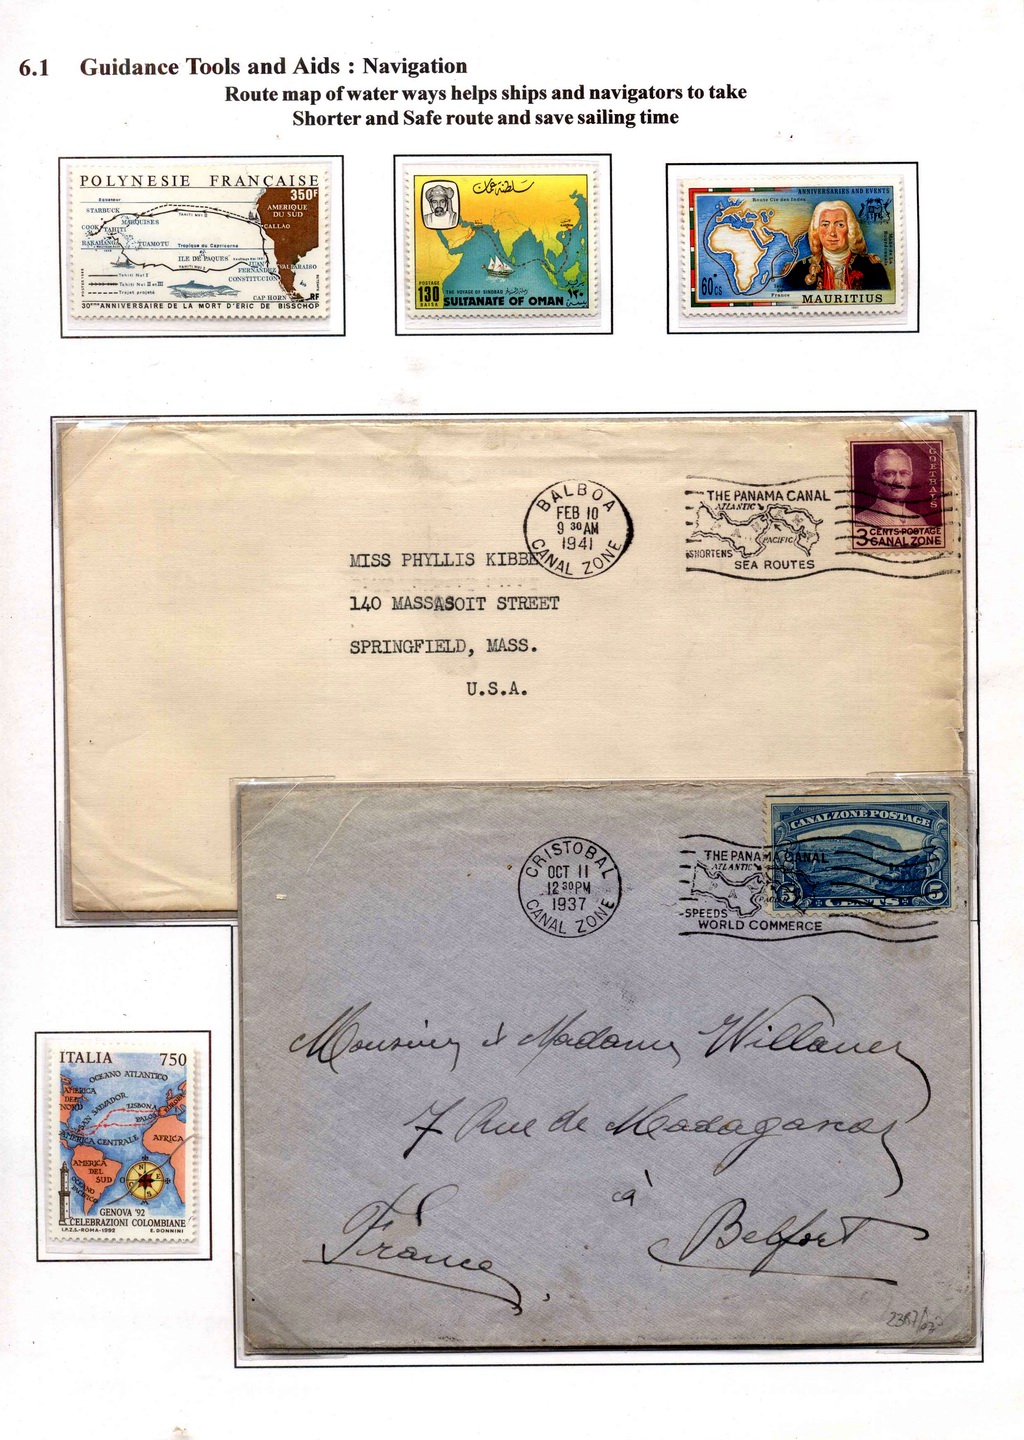 6.1 Guidance Tools and Aids : Navigation
Route map of water ways helps ships and navigators to take
Shorter and Safe route and save sailing time
POLYNESIE FRANÇAISE
350F
Equateur
STARBUCK
AMERIQUE
DU SUD
MARQUISES
COOK
TAHITI
CALLAO
RAKAHANGA
TUAMOTU
Tropique du Capricorne
ILE DE PAQUES
JUAN
FERNANDEZ
VALPARAISO
Tahiti Nui I
CONSTITUCION
Tahiti Nui II et III
Trajet projeté
CAP HORN
RF
30ème ANNIVERSAIRE DE LA MORT D'ERIC DE BISSCHOP
سلطنة عمان
POSTAGE
130
BAISA
THE VOYAGE OF SINDBAD
SULTANATE OF OMAN
١٣٠
ANNIVERSARIES AND EVENTS
Route Cie des Indes
60cs
France
MAURITIUS
BALBOA
FEB 10
9 30 AM
1941
CANAL ZONE
THE PANAMA CANAL
ATLANTIC
PACIFIC
SHORTENS
SEA ROUTES
GOETHALS
3 CENTS·POSTAGE
CANAL ZONE
MISS PHYLLIS KIBBE
140 MASSASOIT STREET
SPRINGFIELD, MASS.
U.S.A.
CRISTOBAL
OCT 11
12 30 PM
1937
CANAL ZONE
THE PANAMA CANAL
ATLANTIC
SPEEDS
WORLD COMMERCE
CANAL ZONE POSTAGE
5 CENTS 5
7 Rue de Madagascar
à
Belfort
France
ITALIA 750
OCEANO ATLANTICO
AMERICA
DEL
NORD
SAN SALVADOR
LISBONA
PALOS
EUROPA
AMERICA CENTRALE
AFRICA
AMERICA
DEL
SUD
OCEANO
PACIFICO
GENOVA '92
CELEBRAZIONI COLOMBIANE
I.P.Z.S.-ROMA-1992 E. DONNINI